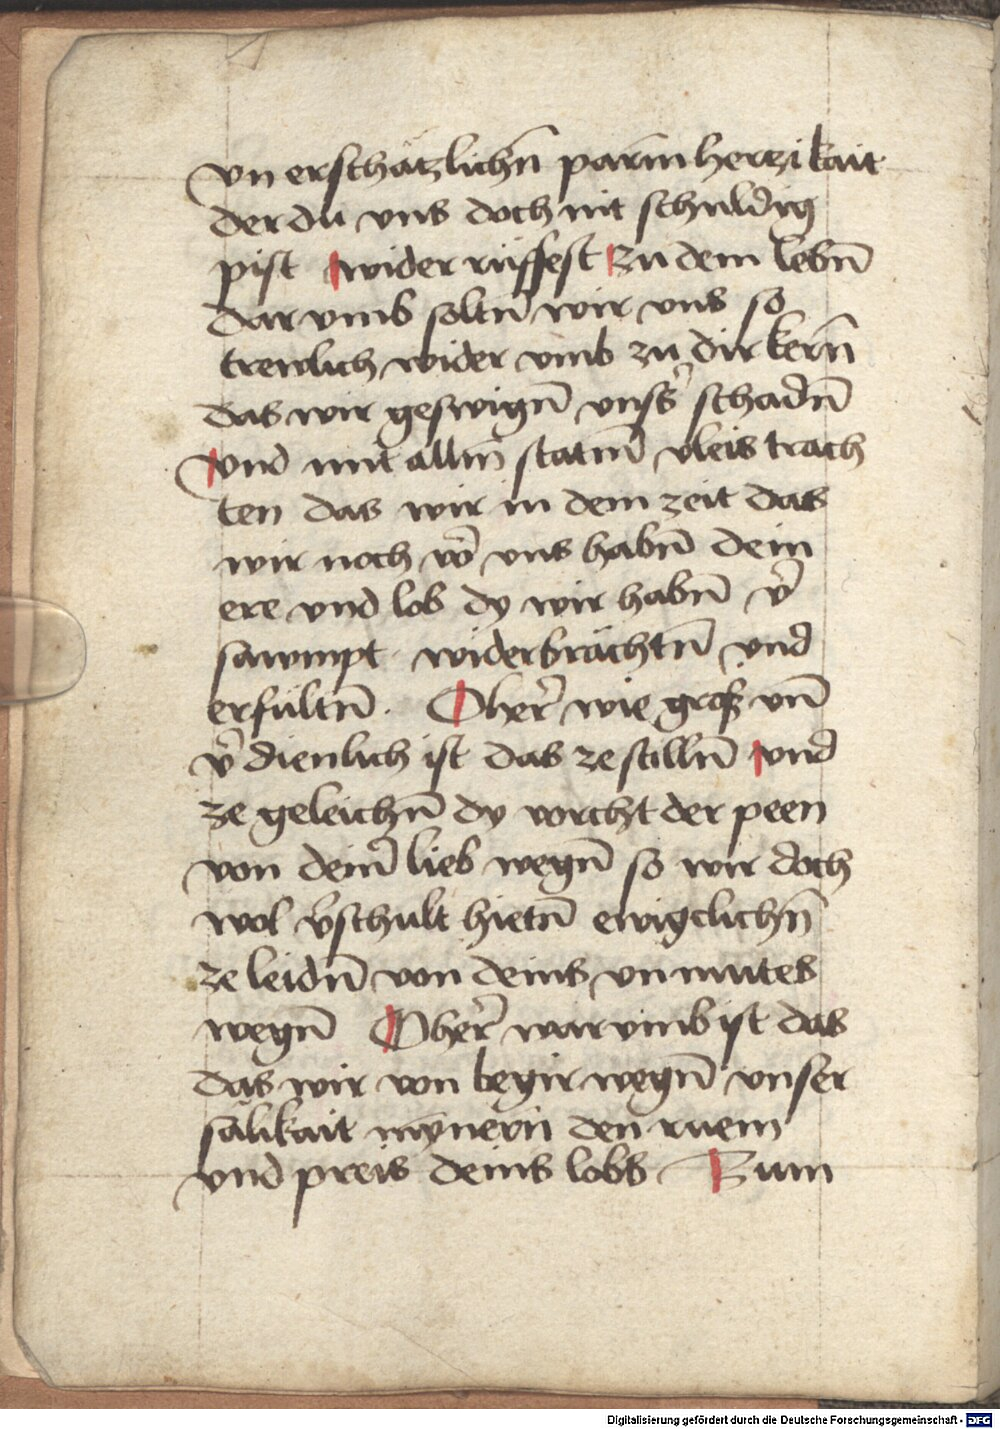 vn erschätzlichn̄ parm̄hertzikait
der du vns doch nit schuldig
pist wider rüffest Zu dem lebn̄
dar vmb soltn̄ wir vns so
trewlich wider vmb zu dir kern̄
das wir geswign̄ vnss̉ schadn̄
vnd mit alln̄ statn̄ vleis trach
ten das wir in dem zeit das
wir noch vor̉ vns habn̄ dein
ere vnd lob dy wir habn̄ v̉
sawmpt widerbrächtn̄ vnd
erfültn̄. O her̉ wie gross vn̄
v̉dienlich ist das ze stilln̄ vnd
ze geleichn̄ dy vorcht der peen
von dein̉ lieb wegn̄ so wir doch
wol v̉schult hietn̄ ewigclichn̄
ze leidn̄ von deins vnmutes
wegn̄ O her̉ war vmb ist das
das wir von begir wegn̄ vnser
sälikait mynern den ruem
vnd preis deins lobs Zum
Digitalisierung gefördert durch die Deutsche Forschungsgemeinschaft - DFG